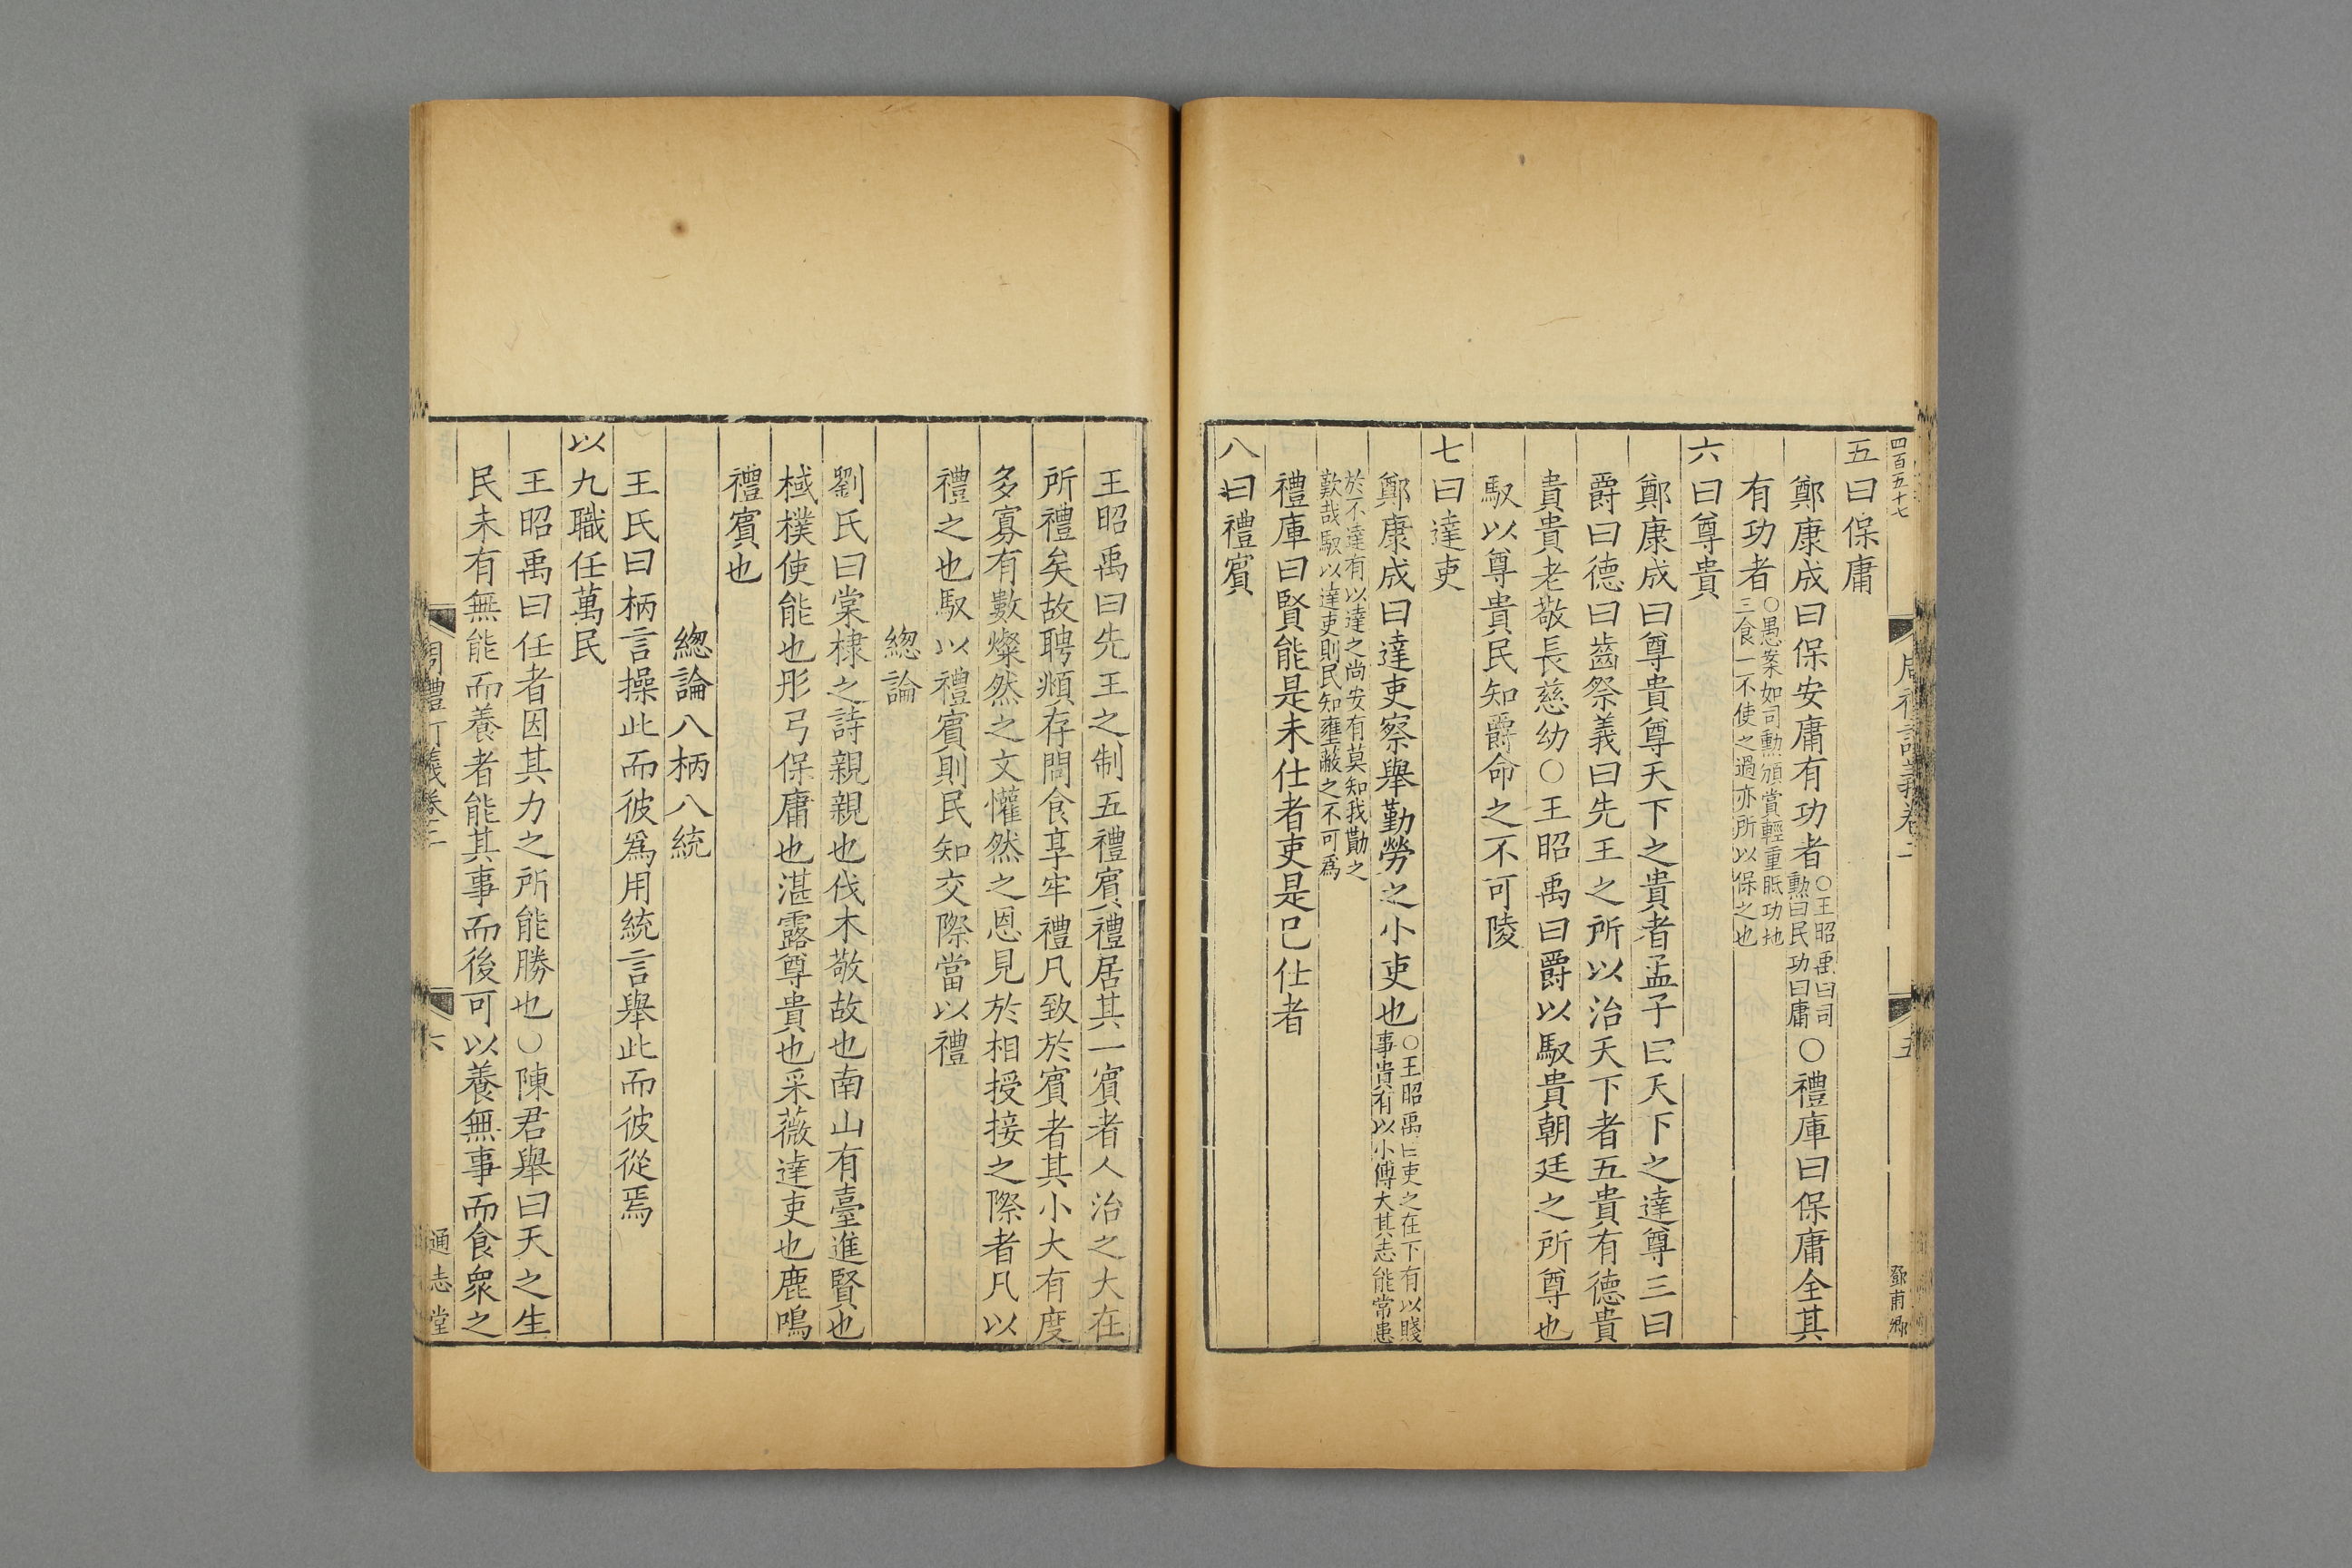 四百五十七
五
鄧甫卿
五曰保庸
鄭康成曰保安庸有功者○王昭禹曰司勲曰民功曰庸○禮庫曰保庸全其
有功者○愚案如司勳頒賞輕重眡功地三食一不使之過亦所以保之也
六曰尊貴
鄭康成曰尊貴尊天下之貴者孟子曰天下之達尊三曰
爵曰德曰齒祭義曰先王之所以治天下者五貴有德貴
貴貴老敬長慈幼○王昭禹曰爵以馭貴朝廷之所尊也
馭以尊貴民知爵命之不可陵
七曰達吏
鄭康成曰達吏察舉勤勞之小吏也○王昭禹曰吏之在下有以賤事貴有以小傅大其志能常患
於不達有以達之尚安有莫知我勩之歎哉馭以達吏則民知壅蔽之不可為
禮庫曰賢能是未仕者吏是巳仕者
八曰禮賓
王昭禹曰先王之制五禮賓禮居其一賓者人治之大在
所禮矣故聘頫存問食享牢禮凡致於賓者其小大有度
多寡有數燦然之文懽然之恩見於相授接之際者凡以
禮之也馭以禮賓則民知交際當以禮
緫論
劉氏曰棠棣之詩親親也伐木敬故也南山有臺進賢也
棫樸使能也彤弓保庸也湛露尊貴也采薇達吏也鹿鳴
禮賓也
緫論八柄八統
王氏曰柄言操此而彼爲用統言舉此而彼從焉
以九職任萬民
王昭禹曰任者因其力之所能勝也○陳君舉曰天之生
民未有無能而養者能其事而後可以養無事而食衆之
六
通志堂